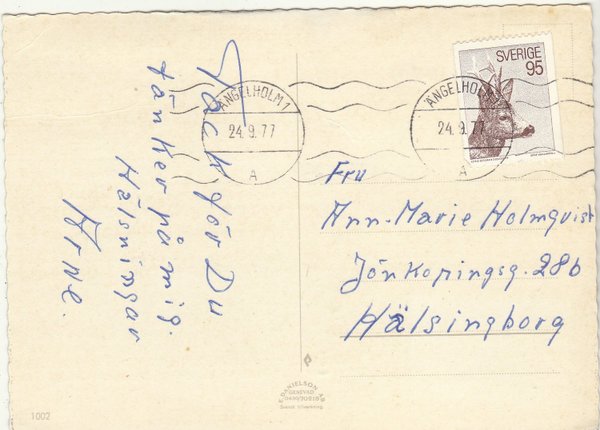 Tack för Du
tänker på mig.
Hälsningar
Arne.
ÄNGELHOLM 1
24.9.77
A
ÄNGELHOLM
24.9.77
A
SVERIGE
95
Fru
Ann-Marie Holmqvist
Jönköpingsg. 28b
Hälsingborg
DANIELSON
GRÄSTAD
Svensk tillverkning
1002